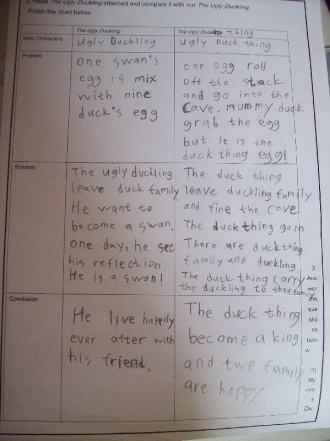 2. Read The Ugly Duckling attached and compare it with our The Ugly Duckling.
Finish the chart below.
The Ugly Duckling
The Ugly Duck thing
Main Characters
Ugly Duckling
Ugly Duck thing
Problem
One swan's
egg is mix
with nine
duck's egg
one egg roll
off the stack
and go into the
cave. mummy duck
grab the egg
but it is the
duck thing egg!
Solution
The ugly duckling
leave duck family
He want to
become a swan.
One day, he see
his reflection.
He is a swan!
The duck thing
leave duckling family
and fine the cave
The duck thing go in
There are duckthing
family and duckling
The duck thing carry
the duckling to their family
Conclusion
He live happily
ever after with
his friend.
The duck thing
become a king
and two family
are happy.
3
Ans
wer
the
que
stio
n
belo
w
(1)
My
Du